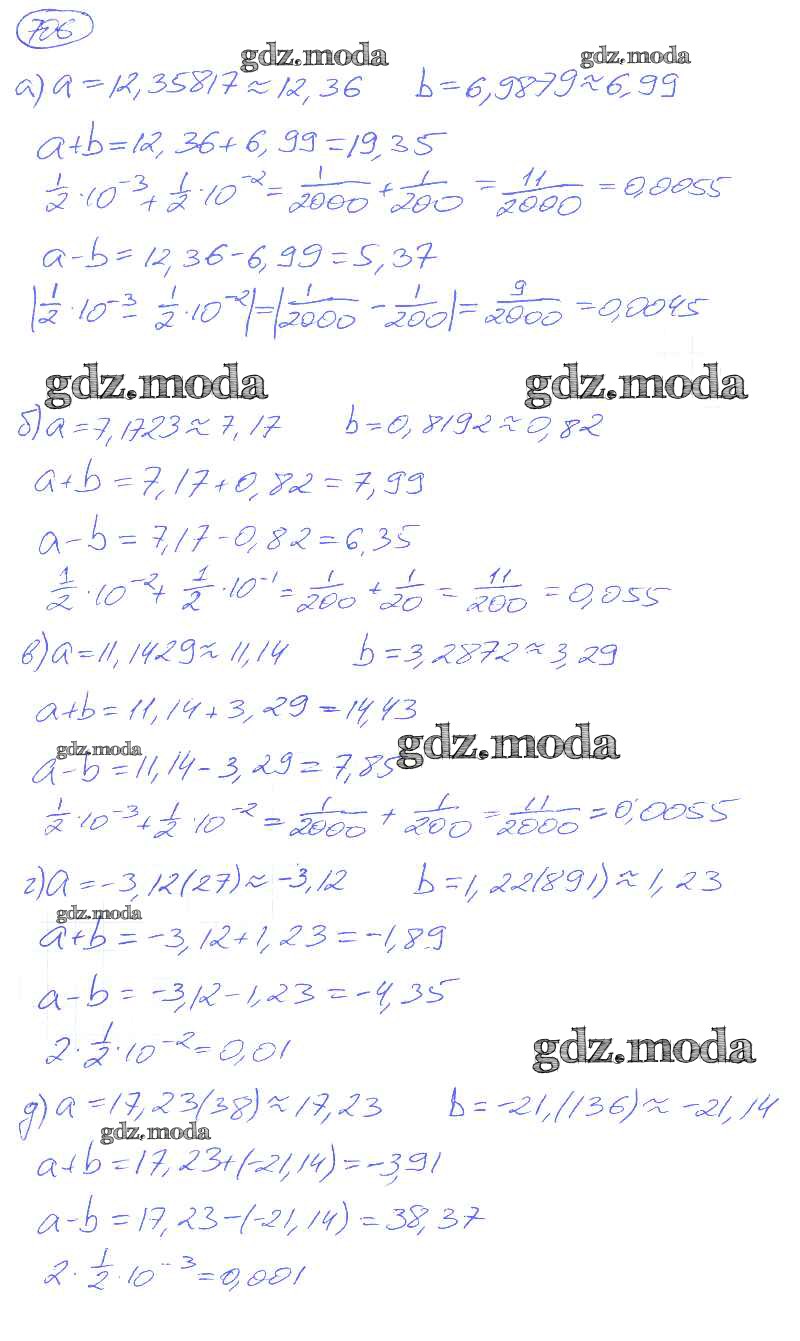 706
gdz.moda gdz.moda
а) a=12,35817≈12,36 b=6,9879≈6,99
a+b=12,36+6,99=19,35
1/2·10⁻³+1/2·10⁻²=1/2000+1/200=11/2000=0,0055
a-b=12,36-6,99=5,37
|1/2·10⁻³-1/2·10⁻²|=|1/2000-1/200|=9/2000=0,0045
gdz.moda gdz.moda
б) a=7,1723≈7,17 b=0,8192≈0,82
a+b=7,17+0,82=7,99
a-b=7,17-0,82=6,35
1/2·10⁻²+1/2·10⁻¹=1/200+1/20=11/200=0,055
в) a=11,1429≈11,14 b=3,2872≈3,29
a+b=11,14+3,29=14,43
gdz.moda gdz.moda
a-b=11,14-3,29=7,85
1/2·10⁻³+1/2·10⁻²=1/2000+1/200=11/2000=0,0055
г) a=-3,12(27)≈-3,12 b=1,22(891)≈1,23
gdz.moda
a+b=-3,12+1,23=-1,89
a-b=-3,12-1,23=-4,35
2·1/2·10⁻²=0,01
gdz.moda
д) a=17,23(38)≈17,23 b=-21,(136)≈-21,14
gdz.moda
a+b=17,23+(-21,14)=-3,91
a-b=17,23-(-21,14)=38,37
2·1/2·10⁻³=0,001